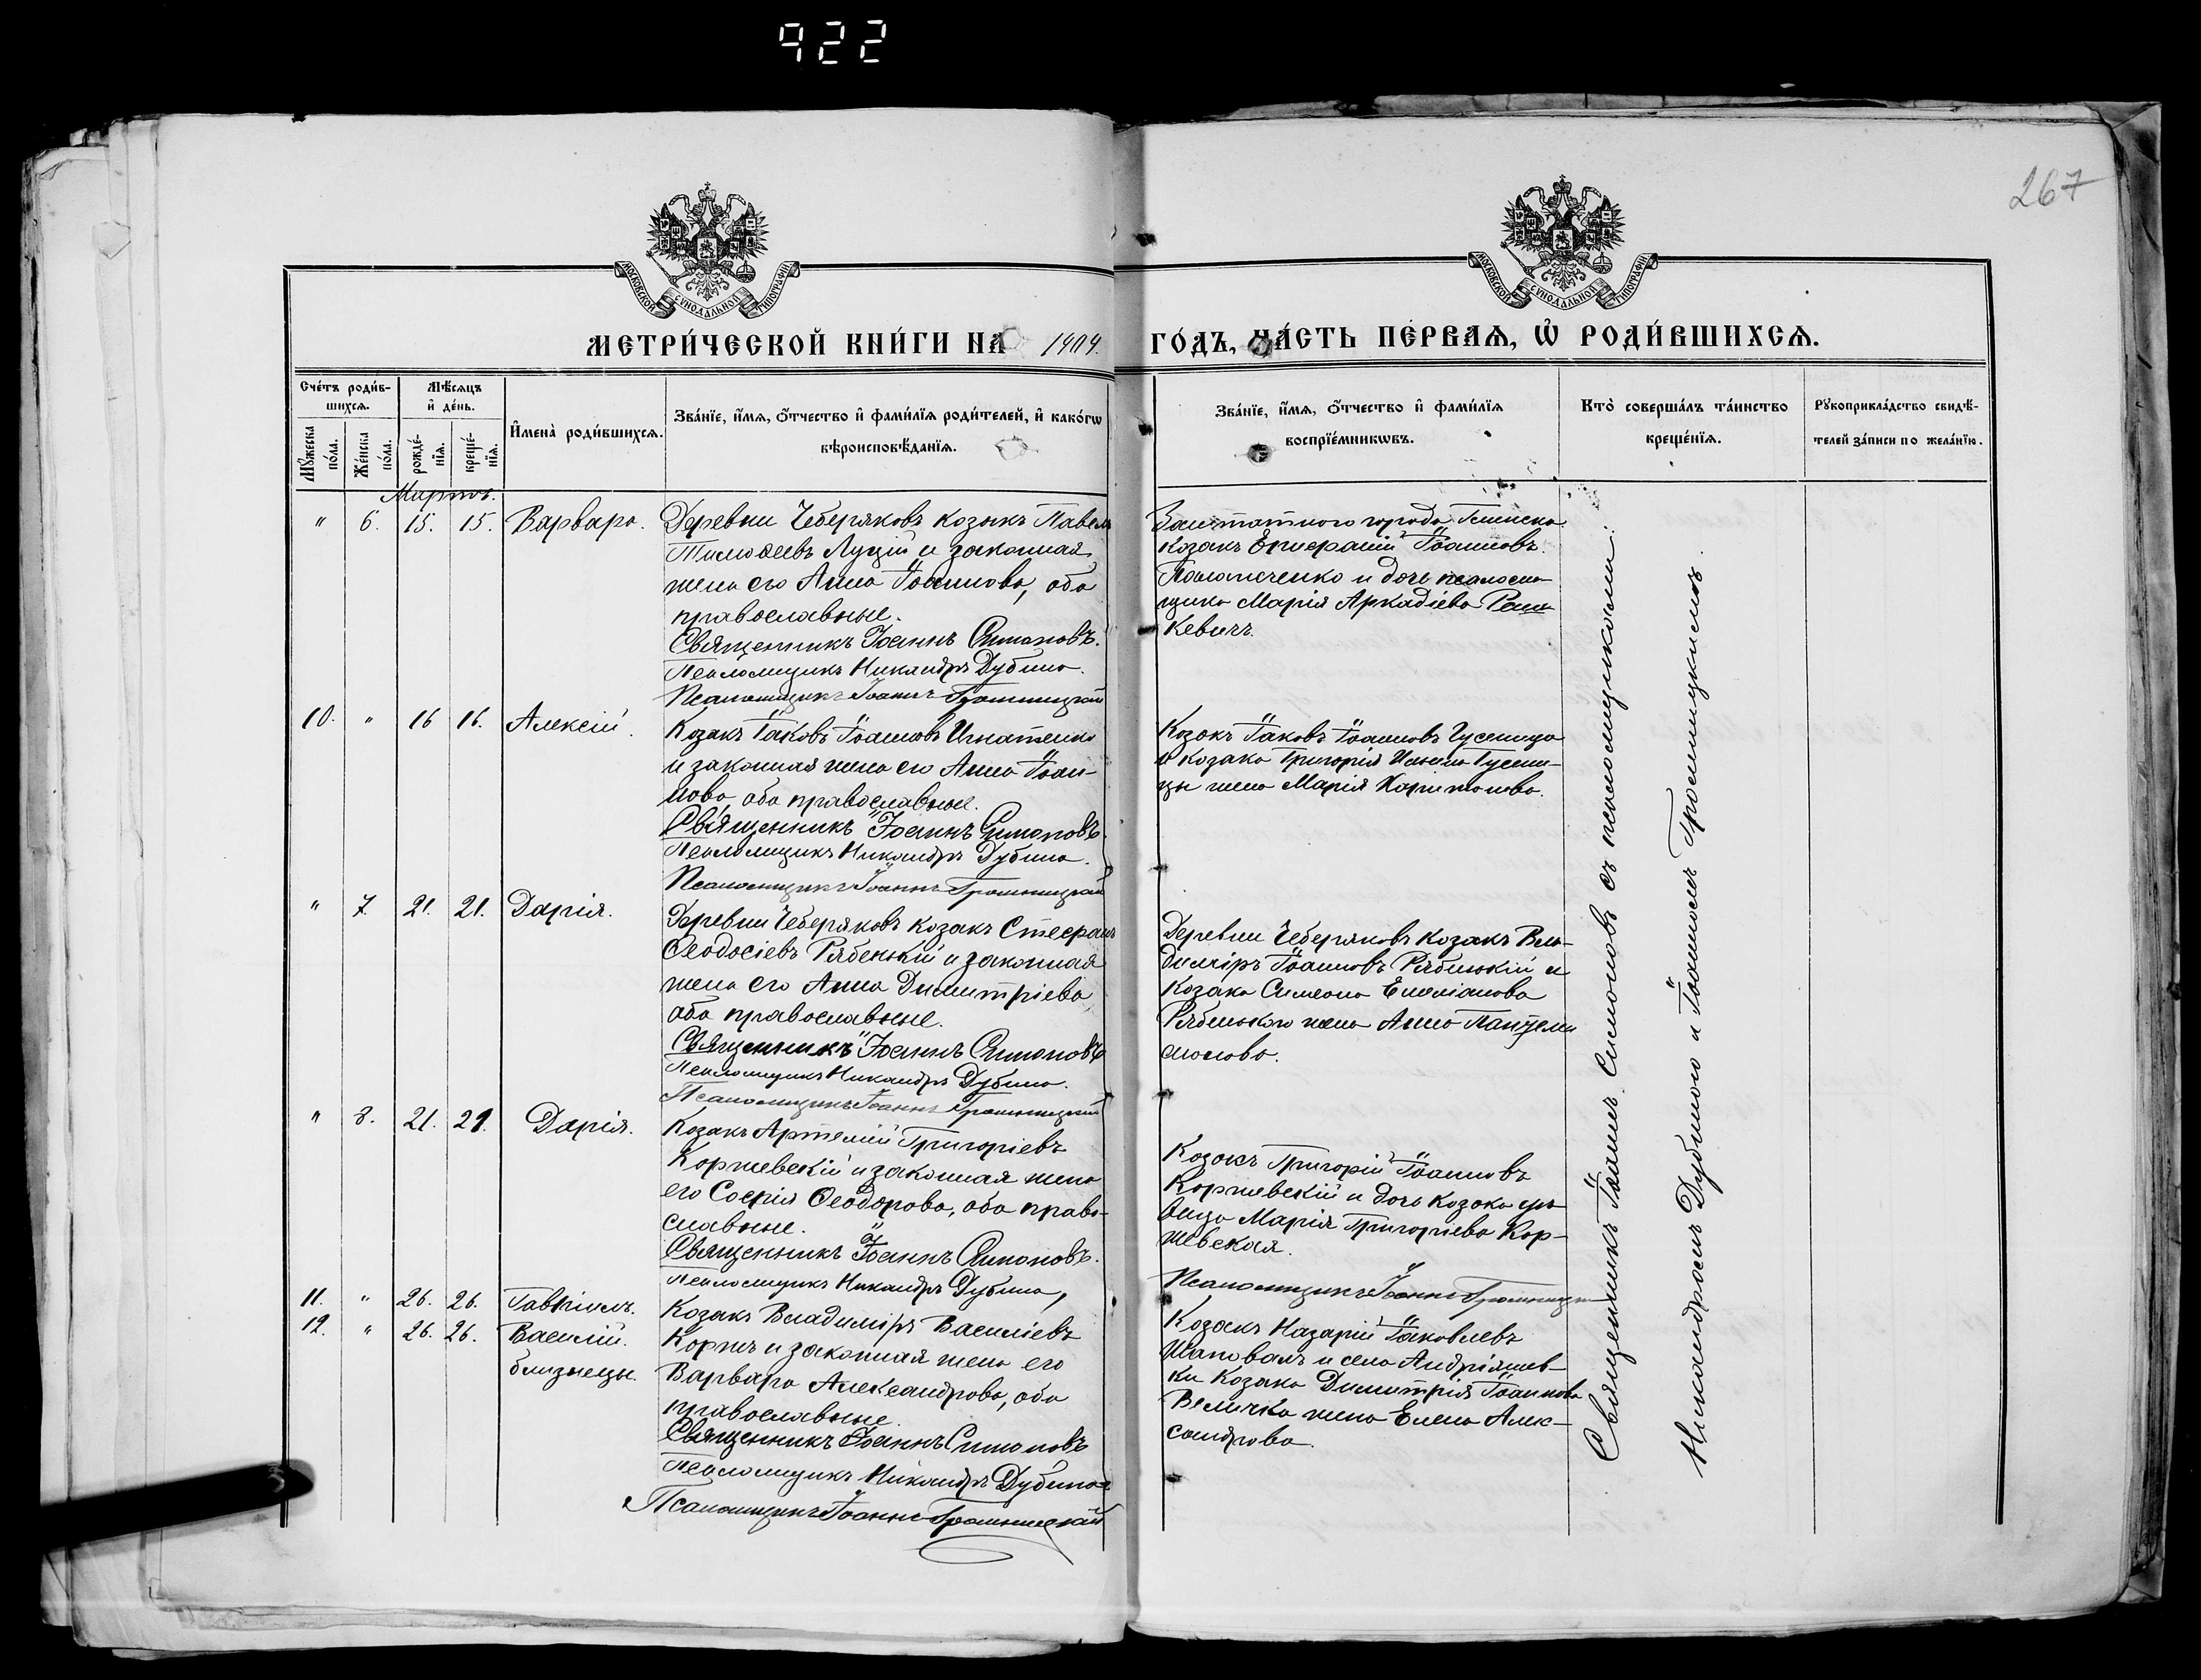 922
267
МОСКОВСКОЙ СѴНОДАЛЬНОЙ ТИПОГРАФІИ
МОСКОВСКОЙ СѴНОДАЛЬНОЙ ТИПОГРАФІИ
МЕТРИ́ЧЕСКОЙ КНИ́ГИ НА 1904. ГО́ДЪ, ЧА́СТЬ ПЕ́РВАѦ, Ѡ҆ РОДИ́ВШИХСѦ.
Сче́тъ роди́в-
шихсѧ.
Мѣ́сѧцъ
и҆ де́нь.
Мꙋ́жеска
по́ла.
Же́нска
по́ла.
рожде́-
нїѧ.
креще́-
нїѧ.
И҆мена̀ роди́вшихсѧ.
Зва́нїе, и҆́мѧ, ѻ҆́тчество и҆ фами́лїѧ роди́телей, и҆ како́гѡ
вѣроисповѣ́данїѧ.
Зва́нїе, и҆́мѧ, ѻ҆́тчество и҆ фами́лїѧ
воспрїе́мникѡвъ.
Кто̀ соверша́лъ та́инство
креще́нїѧ.
Рꙋкоприкла́дство свидѣ́-
телей за́писи по жела́нїю.
Мартъ.
" 6. 15. 15. Варвара.
Деревни Чеберяковъ козакъ Павелъ
Тимоѳеевъ Луцій и законная
жена его Анна Іоаннова, оба
православные.
Священникъ Іоаннъ Симоновъ.
Псаломщикъ Никандръ Дубина.
Псаломщикъ Іоаннъ Тромницкій
Заштатного города Глинска
козакъ Іоанновъ
и дочь псаломщика
щика Марія Аркадіева
кевичъ.
10. " 16 16. Алексій.
Козакъ Іаковъ Іоанновъ Игнатенко
и законная жена его Анна Іоан-
нова, оба православные.
Священникъ Іоаннъ Симоновъ.
Псаломщикъ Никандръ Дубина.
Псаломщикъ Іоаннъ Тромницкій
Козакъ Іаковъ Іоанновъ Гусеница
и козака Григорія Гусени-
цы жена Марія Харитонова.
" 7. 21. 21. Дарія.
Деревни Чеберяковъ козакъ Стефанъ
Ѳеодосіевъ Рябенькій и законная
жена его Анна Димитріева,
оба православные.
Священникъ Іоаннъ Симоновъ
Псаломщикъ Никандръ Дубина.
Псаломщикъ Іоаннъ Тромницкій
Деревни Чеберяковъ козакъ Вла-
диміръ Іоанновъ Рябенькій и
козака Симеона Емеліанова
Рябенького жена Анна Пантелеи
монова.
" 8. 21. 21. Дарія.
Козакъ Артемій Григоріевъ
Коржевскій и законная жена
его Софія Ѳеодорова, оба право-
славные.
Священникъ Іоаннъ Симоновъ.
Псаломщикъ Никандръ Дубина,
Козакъ Григорій Іоанновъ
Коржевскій и дочь козака дѣ-
вица Марія Григоріева Кор-
жевская.
Псаломщикъ Іоаннъ Тромницкій
11. " 26. 26. Гавріилъ.
12. " 26. 26. Василій.
близнецы.
Козакъ Владиміръ Василіевъ
Коржъ и законная жена его
Варвара Александрова, оба
православные.
Священникъ Іоаннъ Симоновъ
Псаломщикъ Никандръ Дубина
Псаломщикъ Іоаннъ Тромницкій
Козакъ Назарій Іаковлевъ
Шаповалъ и села Андріяшев-
ки козака Димитрія Іоаннова
Величка жена Елена Алек-
сандрова.
Священникъ Іоаннъ Симоновъ съ псаломщиками:
Никандромъ Дубиною и Іоанномъ Тромницкимъ.